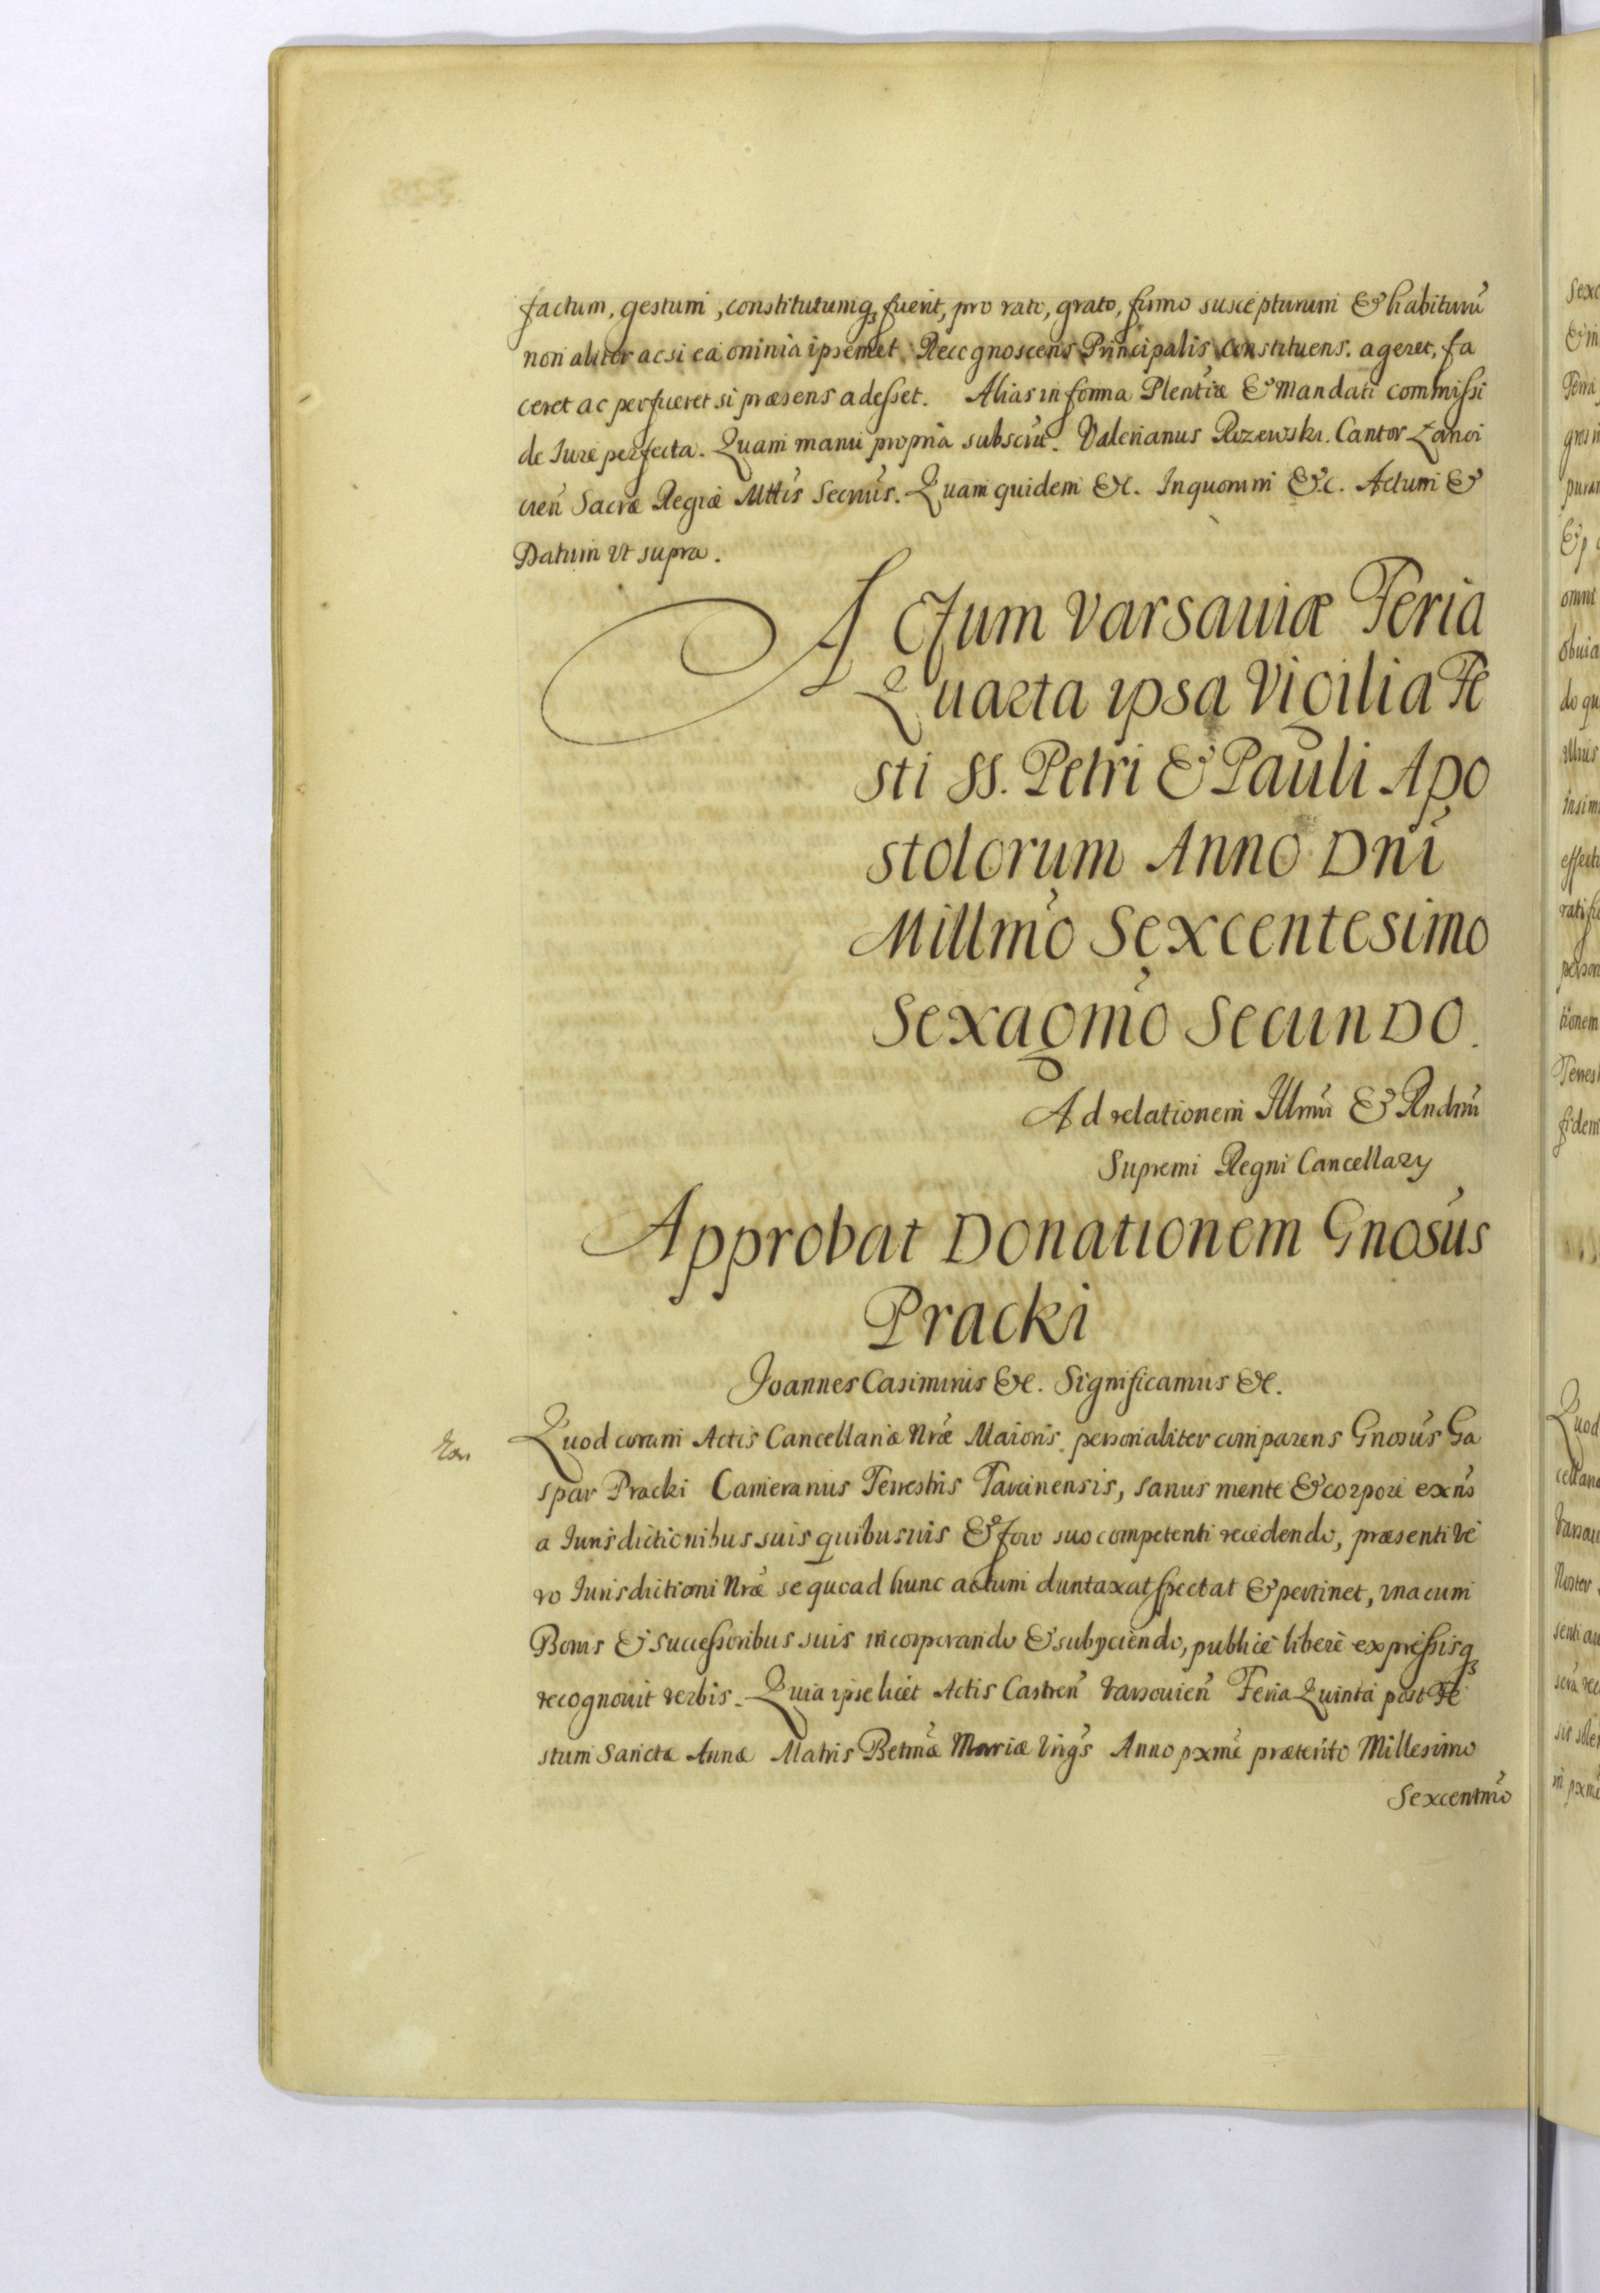 factum, gestum, constitutumq₃ fuerit, pro rato, grato, firmo suscepturum & habiturũ
non aliter ac si ea omnia ipsemet Recognoscens Principalis Constituens. ageret, fa
ceret ac perfueret si præsens adesset. Alias in forma Plent̃iæ & Mandati commissi
de Iure perfecta. Quam manu propria subscrit̃. Valerianus Rszewski. Cantor Lanci
cieñ Sacræ Regiæ Mttis̃ Secrius̃. Quam quidem &c. In quorum &c. Actum &
Datum vt supra.
Actum Varsauiæ Feria
Quarta ipsa Vigilia Fe
sti SS. Petri & Pauli Apo
stolorum Anno Dnĩ
Millmõ Sexcentesimo
Sexagmõ Secundo.
Ad relationem Illmĩ & Rndmĩ
Supremi Regni Cancellary
Approbat Donationem Gnosus̃
Pracki
Joannes Casimirus &c. Significamus &c.
Quod coram Actis Cancellariæ Nræ̃ Maioris personaliter comparens Gnosus̃ Ga
spar Pracki Camerarius Terrestris Tarcinensis, sanus mente & corpore exñs
a Iurisdictionibus suis quibusuis & foro suo competenti recedendo, præsenti ve
ro Iurisdictioni Nræ̃ se quoad hunc actum duntaxat spectat & pertinet, vna cum
Bonis & successoribus suis incorporando & subyciendo, publicè liberè expressisq₃
recognouit verbis. Quia ipse licèt Actis Castreñ Varsouieñ Feria Quinta post Fe
stum Sanctæ Annæ Matris Betmæ̃ Mariæ Virgs̃ Anno pxmẽ præterito Millesimo
Sexcentmõ